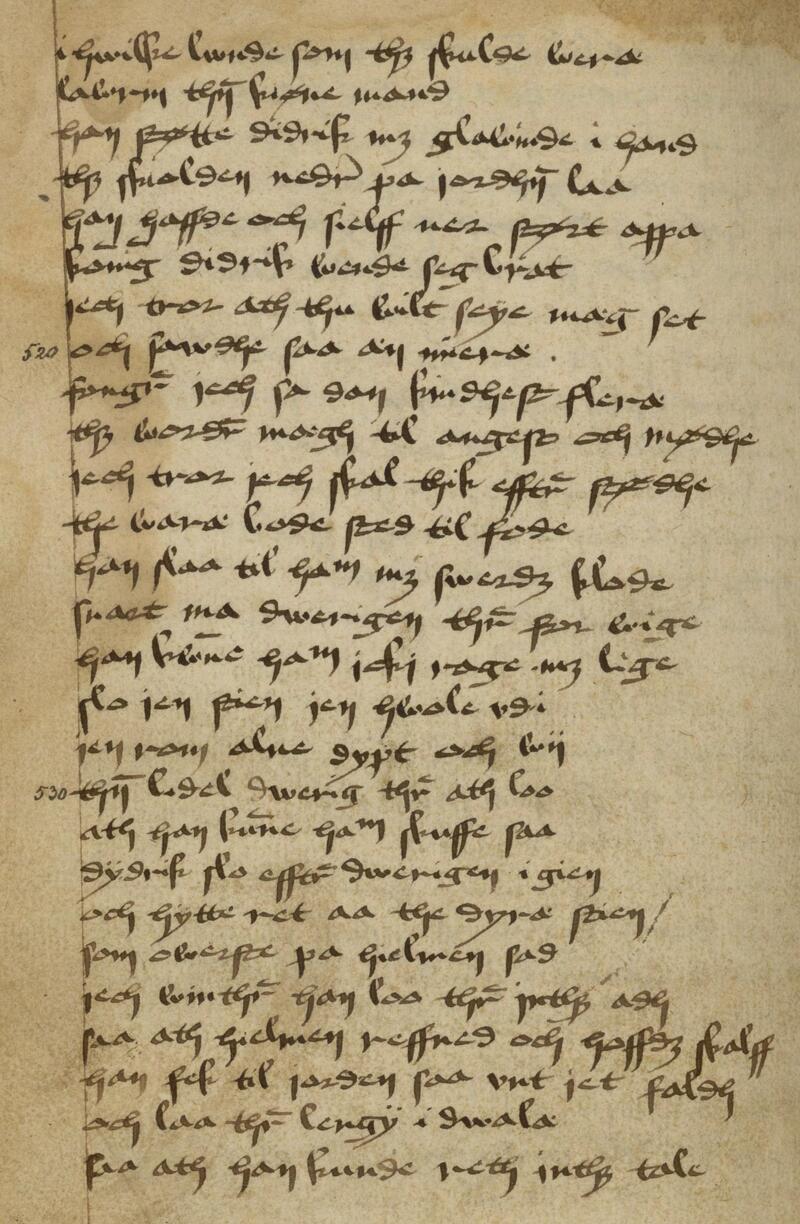 i hwilke lwnde som thꝫ skulde weræ
lawrin thn̄ kiøne mand
han støtte didrik mꝫ glawinde i hand
thꝫ skiolden nedr̄ pa jordhn̄ laa
han haffde och sielff ner størt appa
kōnīg didrik wende seg brat
jech tror ath thu wilt seye mæg set
520 och sawdhe saa än mieræ .
fongr̄ jech sa dan kindhest fleræ
thꝫ wordr̄ mægh til angest och mødhe
jech tror jech skal thik efftr̄ stødhe
the waræ bode sted til fode
han slaa til haᵐ mꝫ swerdꝫ klode
snart ma dwerigen thr̄ for wige
han kwn̄e haᵐ icki rage mꝫ lige
slo jen stien jen hwole vdi
jen rom alne dypt och wij
530 thn̄ lidel dwerig thr̄ ath loo
ath han kun̄e haᵐ skuffe saa
dydrik slo efftr̄ dwerigen igien
och hytte ret aa the dyræ stien/
som owerste pa hielmen sad
jech winthr̄ han loo thr̄ inthꝫ adh
saa ath hielmen reffned och hoffdꝫ skalff
han fek til jorden saa vnt jet faldh
och laa thr̄ lengÿ i dwalæ
saa ath han kunde reth inthꝫ tale